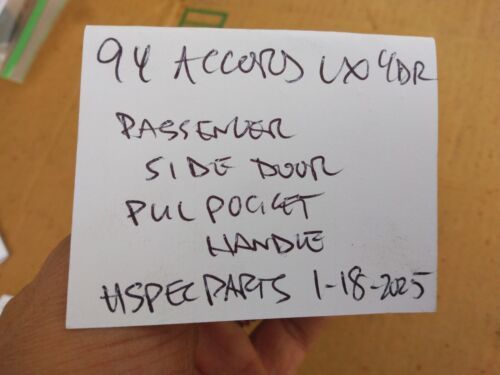 94 ACCORD LX 4DR
PASSENGER
SIDE DOOR
PUL POCKET
HANDLE
HSPECPARTS 1-18-2025